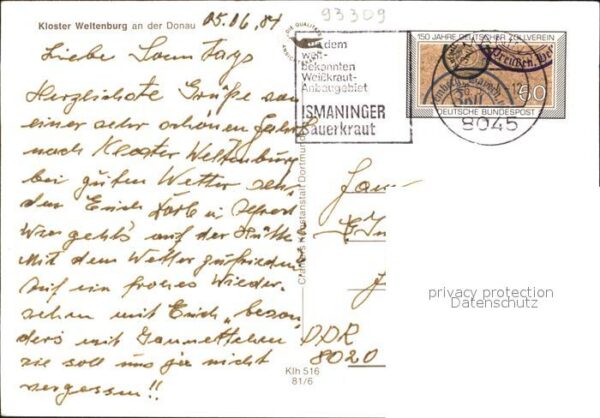 Kloster Weltenburg an der Donau
05.06.84
93309
Liebe
Herzlichste Grüße von
einer sehr schönen Fahrt
nach Kloster Weltenburg
bei guten Wetter
den Erich
Wie gehts auf der Hütte
Mit dem Wetter zufrieden
auf ein frohes Wieder-
sehen mit Erich beson
ders mit
sie soll uns ja nicht
vergessen!!
DIE QUALITÄT
aus dem
welt-
bekannten
Weißkraut-
Anbaugebiet
ISMANINGER
Sauerkraut
150 JAHRE DEUTSCHER ZOLLVEREIN
Preußen
80
DEUTSCHE BUNDESPOST
8045
Cramers Kunstanstalt Dortmund
DDR
8020
Klh 516
81/6
privacy protection
Datenschutz